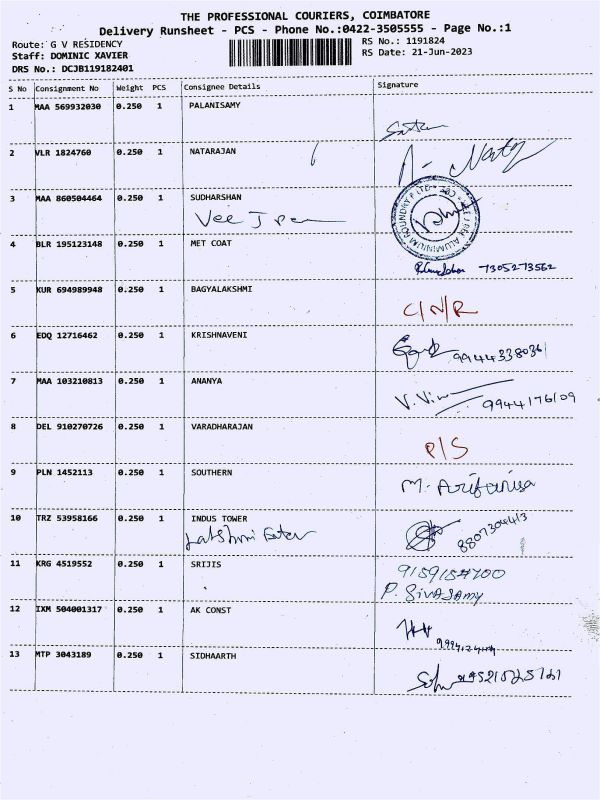 THE PROFESSIONAL COURIERS, COIMBATORE
Delivery Runsheet - PCS - Phone No.:0422-3505555 - Page No.:1
Route: G V RESIDENCY RS No.: 1191824
Staff: DOMINIC XAVIER RS Date: 21-Jun-2023
DRS No.: DCJB119182401
S No Consignment No Weight PCS Consignee Details Signature
1 MAA 569932030 0.250 1 PALANISAMY
2 VLR 1824760 0.250 1 NATARAJAN
3 MAA 860504464 0.250 1 SUDHARSHAN
Vee J
4 BLR 195123148 0.250 1 MET COAT
7305273562
5 KUR 694989948 0.250 1 BAGYALAKSHMI
C/N/R
6 EDQ 12716462 0.250 1 KRISHNAVENI
9944338036
7 MAA 103210813 0.250 1 ANANYA
9944176109
8 DEL 910270726 0.250 1 VARADHARAJAN
P/S
9 PLN 1452113 0.250 1 SOUTHERN
M. Arifunisa
10 TRZ 53958166 0.250 1 INDUS TOWER
Lakshmi 8807304413
11 KRG 4519552 0.250 1 SRIJIS
P. SIVASAMY
12 IXM 504001317 0.250 1 AK CONST
13 MTP 3043189 0.250 1 SIDHAARTH